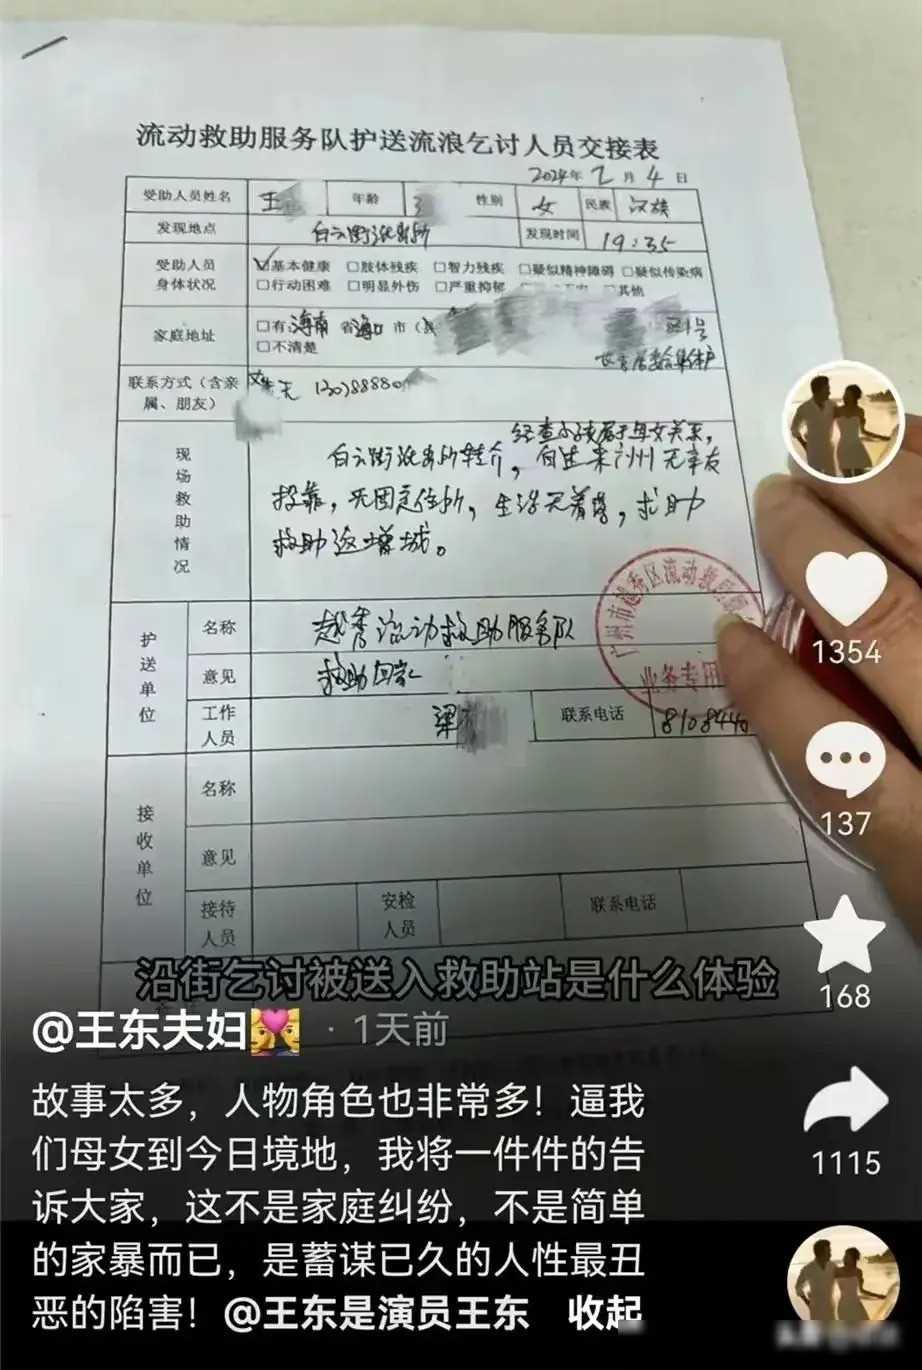 流动救助服务队护送流浪乞讨人员交接表
2024年2月4日
受助人员姓名 王 年龄 3 性别 女 民族 汉族
发现地点 白云街派出所 发现时间 19:35
受助人员身体状况 ☑基本健康 □肢体残疾 □智力残疾 □疑似精神障碍 □疑似传染病
□行动困难 □明显外伤 □严重抑郁 其他
家庭地址 □有 海南省海口市(县
□不清楚
联系方式(含亲属、朋友)
现场救助情况
经查小孩属于母女关系,
白云街派出所转介,自述来广州无亲友
投靠,无固定住所,生活无着落,求助
救助返增城。
护送单位 名称 越秀流动救助服务队
意见 救助回家
工作人员 梁 联系电话 8108440
广州市越秀区流动救助服
业务专用
接收单位 名称
意见
接待人员 安检人员 联系电话
沿街乞讨被送入救助站是什么体验
@王东夫妇 · 1天前
故事太多，人物角色也非常多！逼我
们母女到今日境地，我将一件件的告
诉大家，这不是家庭纠纷，不是简单
的家暴而已，是蓄谋已久的人性最丑
恶的陷害！@王东是演员王东 收起
1354
137
168
1115